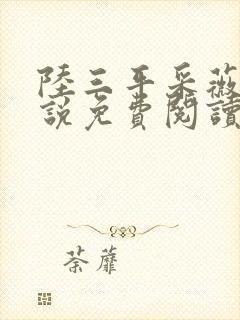 陸三平采薇
說免費閱讀
荼蘼